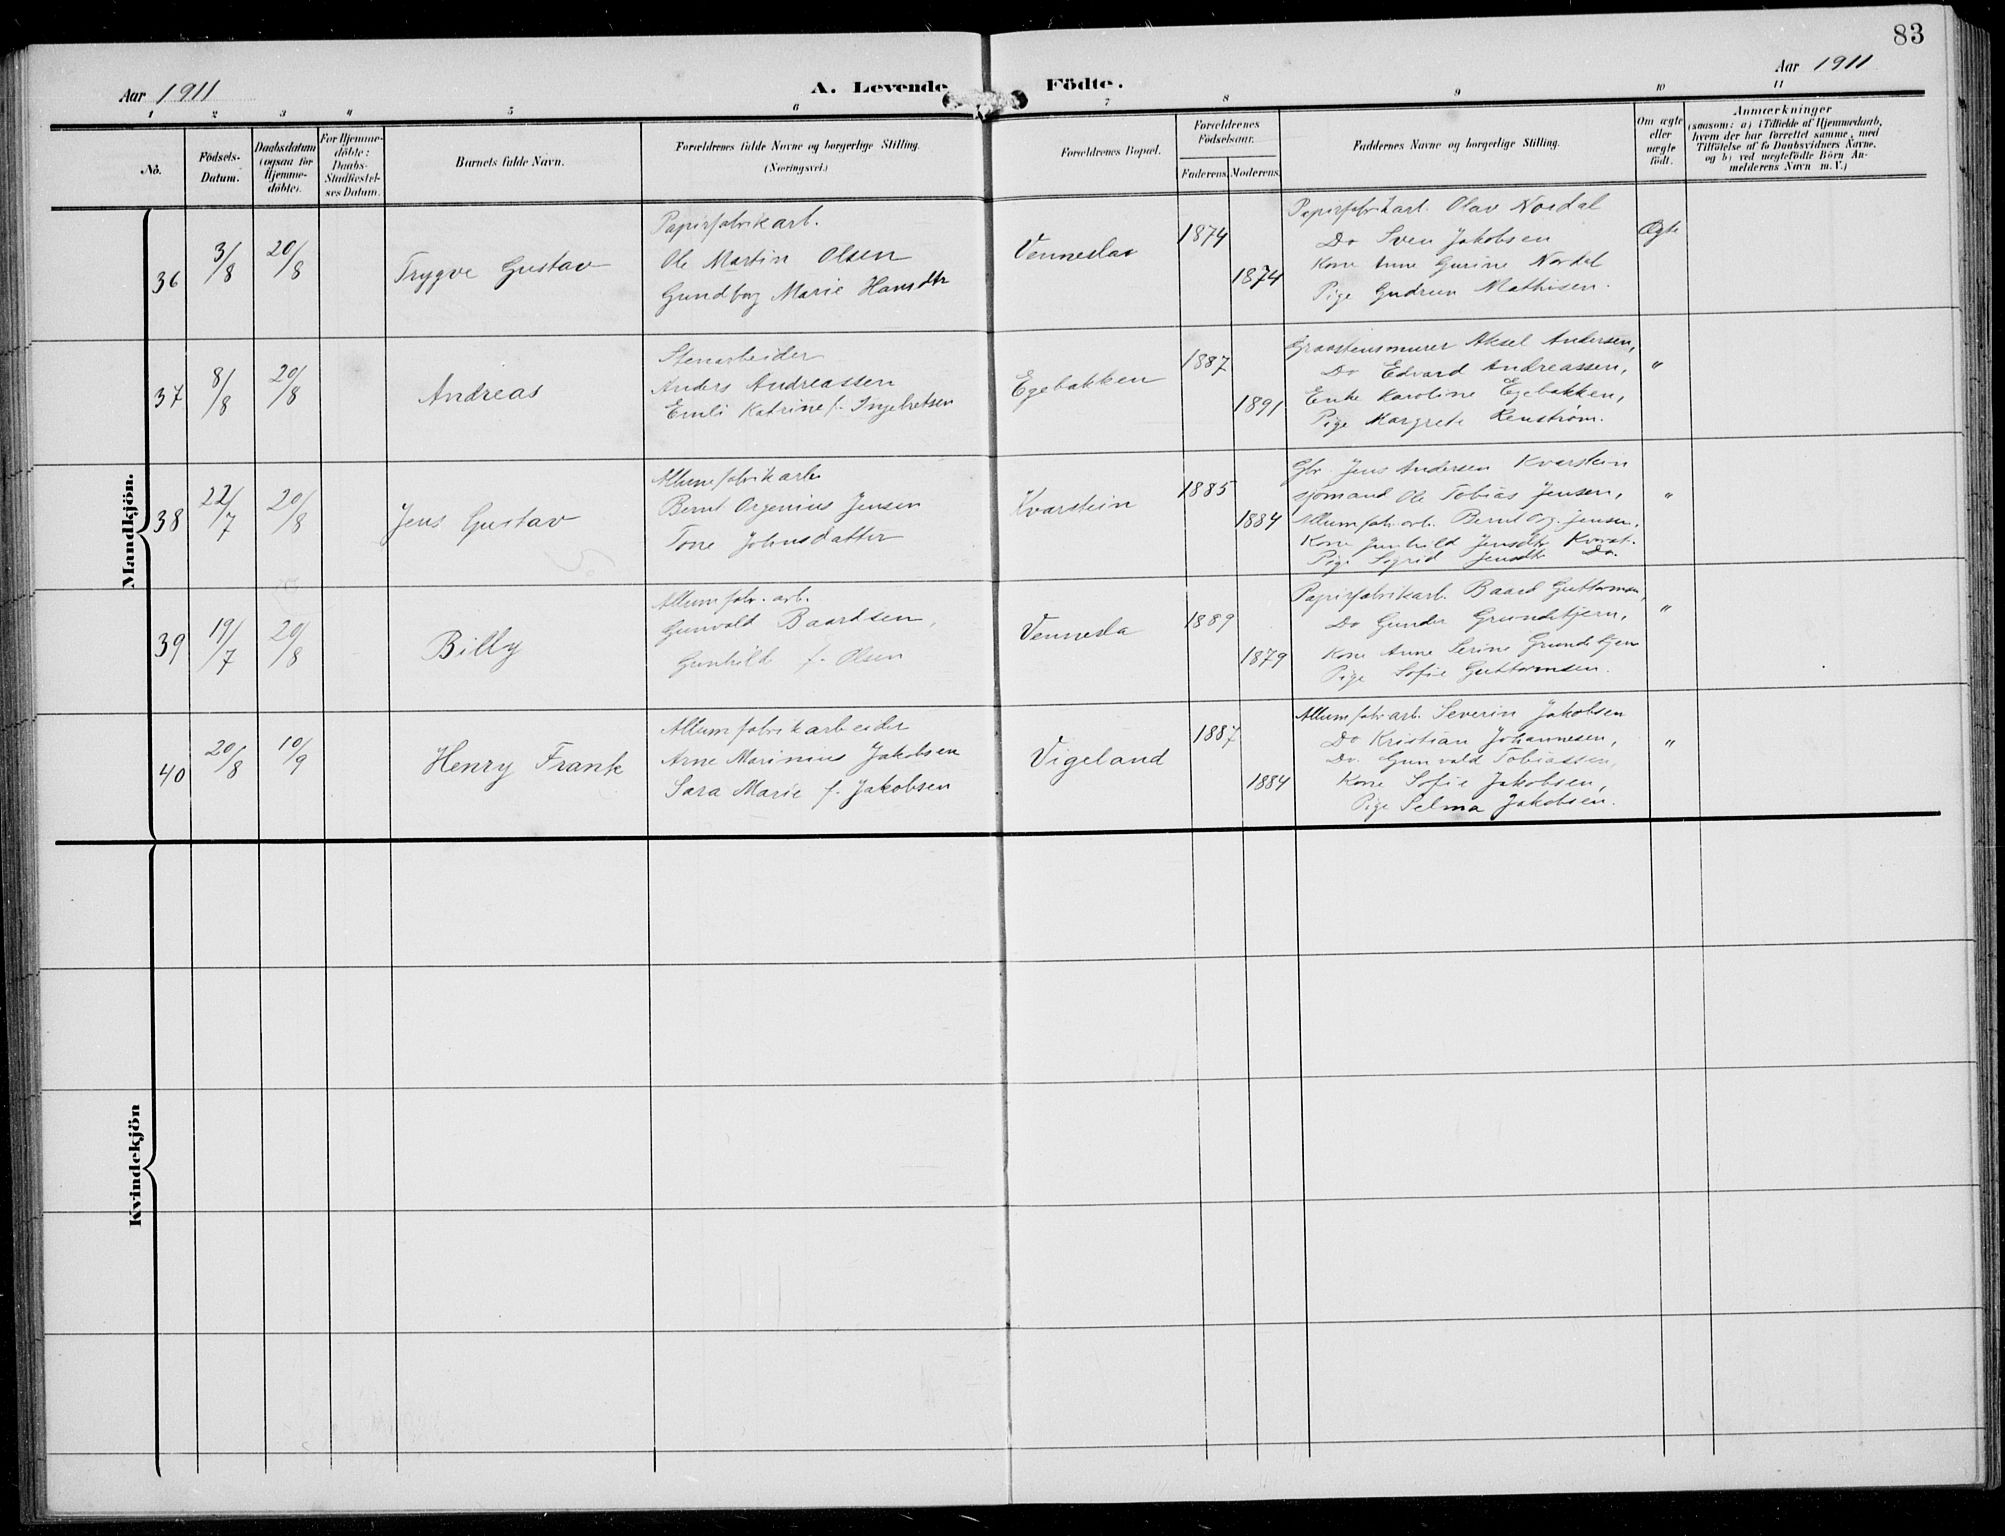 83
Aar 1911
A. Levende Födte.
Aar 1911
1 2 3 4 5 6 7 8 9 10 11
No.
Födsels-Datum.
Daabsdatum (ogsaa for Hjemme-döbte).
For Hjemme-döbte: Daabs-Stadfæstel-ses Datum.
Barnets fulde Navn.
Forældrenes fulde Navne og borgerlige Stilling.
(Næringsvei.)
Forældrenes Bopæl.
Forældrenes Födselsaar.
Faderens. Moderens.
Faddernes Navne og borgerlige Stilling.
Om ægte eller uægte födt.
Anmærkninger
(saasom: a) i Tilfælde af Hjemmedaab,
hvem der har forrettet samme, med
Tilföielse af to Daabsvidners Navne,
og b) ved uægtefödte Börn An-
melderens Navn m. V.)
Mandkjön.
36 3/8 20/8 Trygve Gustav
Papirfabrikarb.
Ole Martin Olsen
Gundborg Marie Hansdtr
Vennesla
1874
1874
Papirfabrikarb. Olav Nordal
Do Sven Jakobsen
Kone Anne Gurine Nordal
Pige Gudrun Mathisen.
Ægte
37 8/8 20/8 Andreas
Stenarbeider
Anders Andreassen
Emli Katrine f. Ingebretsen
Egebakken
1887
1891
Graastensmurer Aksel Andersen,
Do Edvard Andreassen,
Enke Karoline Egebakken,
Pige Margrete Renstrøm.
"
38 22/7 20/8 Jens Gustav
Allumfabrikarb.
Bernt Orgenius Jensen
Tone Johnsdatter
Kvarstein
1885
1884
Gbr. Jens Andersen Kvarstein
sjömand Ole Tobias Jensen,
Allumfabr.arb. Bernt Org. Jensen,
Kone Gunhild Jensdtr Kvarst.
Pige Sigrid Jensdtr Do.
"
39 19/7 20/8 Billy
Allumfabr. arb.
Gunvald Baardsen,
Gunhild f. Olsen
Vennesla
1889
1879
Papirfabrikarb. Baard Guttormsen,
Do Gunder Grundetjern,
Kone Anne Serine Grundetjern
Pige Sofie Guttormsen.
"
40 20/8 10/9 Henry Frank
Allumfabrikarbeider
Arne Marinius Jakobsen
Sara Marie f. Jakobsen
Vigeland
1887
1884
Allumfabrarb. Severin Jakobsen
Do Kristian Johannesen,
Do. Gunvald Tobiassen,
Kone Sofie Jakobsen,
Pige Selma Jakobsen.
"
Kvindekjön